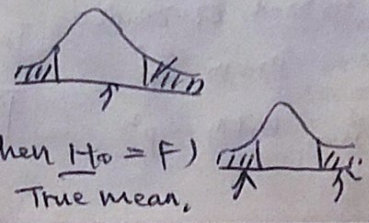 hen H₀ = F)
True mean.